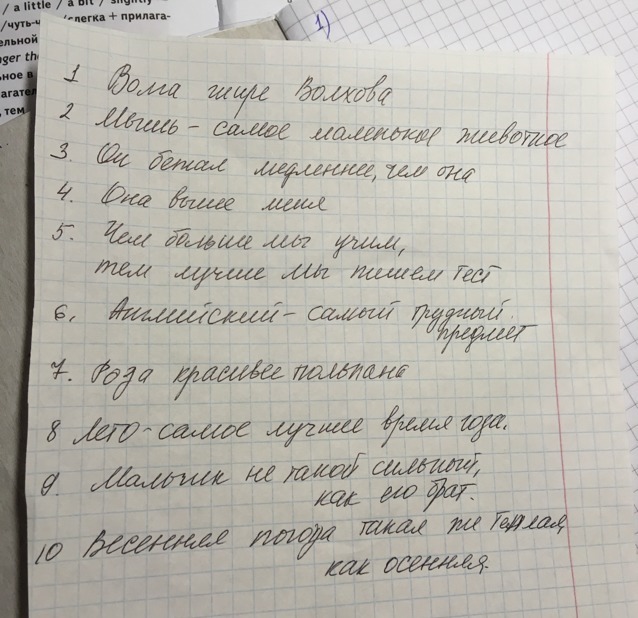 / a little / a bit / slightly
/чуть-ч
/слегка + прилага-
ельной
nger th
ьное в
агател
, тем
1)
1 Волга шире Волхова
2 Мышь - самое маленькое животное
3. Он бежал медленнее, чем она
4. Она выше меня
5. Чем больше мы учим,
тем лучше мы пишем тест
6. Английский - самый трудный
предмет
7. Роза красивее тюльпана
8 Лето - самое лучшее время года.
9. Мальчик не такой сильный,
как его брат.
10 Весенняя погода такая же теплая,
как осенняя.